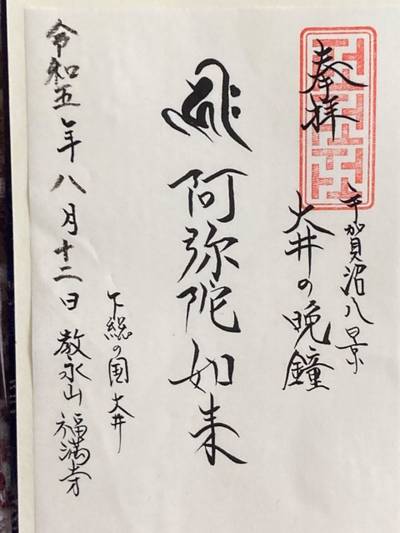 奉拝
手賀沼八景
大井の晩鐘
阿弥陀如来
下総の国大井
令和五年八月十二日 教永山 福満寺